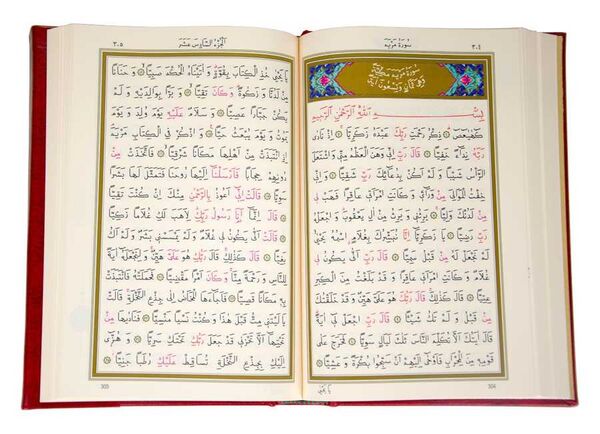 ٣٠٤ سُورَةُ مَرْيَمَ
سُورَةُ مَرْيَمَ مَكِّيَّةٌ
وَهِيَ ثَمَانٍ وَتِسْعُونَ آيَةً
بِسْمِ اللّٰهِ الرَّحْمٰنِ الرَّحِيمِ
كٓهٰيٰعٓصٓ ۞ ذِكْرُ رَحْمَتِ رَبِّكَ عَبْدَهُ زَكَرِيَّا ۞ اِذْ نَادٰى
رَبَّهُ نِدَٓاءً خَفِيًّا ۞ قَالَ رَبِّ اِنِّي وَهَنَ الْعَظْمُ مِنِّي وَاشْتَعَلَ
الرَّأْسُ شَيْبًا وَلَمْ اَكُنْ بِدُعَٓائِكَ رَبِّ شَقِيًّا ۞ وَاِنِّي
خِفْتُ الْمَوَالِيَ مِنْ وَرَٓاءِي وَكَانَتِ امْرَاَتِي عَاقِرًا فَهَبْ لِي
مِنْ لَدُنْكَ وَلِيًّا ۞ يَرِثُنِي وَيَرِثُ مِنْ اٰلِ يَعْقُوبَ وَاجْعَلْهُ
رَبِّ رَضِيًّا ۞ يَا زَكَرِيَّٓا اِنَّا نُبَشِّرُكَ بِغُلَامٍ اسْمُهُ يَحْيٰى
لَمْ نَجْعَلْ لَهُ مِنْ قَبْلُ سَمِيًّا ۞ قَالَ رَبِّ اَنّٰى يَكُونُ لِي
غُلَامٌ وَكَانَتِ امْرَاَتِي عَاقِرًا وَقَدْ بَلَغْتُ مِنَ الْكِبَرِ
عِتِيًّا ۞ قَالَ كَذٰلِكَ قَالَ رَبُّكَ هُوَ عَلَيَّ هَيِّنٌ وَقَدْ خَلَقْتُكَ
مِنْ قَبْلُ وَلَمْ تَكُ شَيْئًا ۞ قَالَ رَبِّ اجْعَلْ لِٓي اٰيَةً
قَالَ اٰيَتُكَ اَلَّا تُكَلِّمَ النَّاسَ ثَلٰثَ لَيَالٍ سَوِيًّا ۞ فَخَرَجَ عَلٰى
قَوْمِهِ مِنَ الْمِحْرَابِ فَاَوْحٰٓى اِلَيْهِمْ اَنْ سَبِّحُوا بُكْرَةً وَعَشِيًّا ۞
يَا يَحْيٰى
304
اَلْجُزْءُ السَّادِسَ عَشَرَ ٣٠٥
يَا يَحْيٰى خُذِ الْكِتَابَ بِقُوَّةٍ وَاٰتَيْنَاهُ الْحُكْمَ صَبِيًّا ۞ وَحَنَانًا
مِنْ لَدُنَّا وَزَكٰوةً وَكَانَ تَقِيًّا ۞ وَبَرًّا بِوَالِدَيْهِ وَلَمْ
يَكُنْ جَبَّارًا عَصِيًّا ۞ وَسَلَامٌ عَلَيْهِ يَوْمَ وُلِدَ وَيَوْمَ
يَمُوتُ وَيَوْمَ يُبْعَثُ حَيًّا ۞ وَاذْكُرْ فِي الْكِتَابِ مَرْيَمَ
اِذِ انْتَبَذَتْ مِنْ اَهْلِهَا مَكَانًا شَرْقِيًّا ۞ فَاتَّخَذَتْ مِنْ
دُونِهِمْ حِجَابًا فَاَرْسَلْنَٓا اِلَيْهَا رُوحَنَا فَتَمَثَّلَ لَهَا بَشَرًا
سَوِيًّا ۞ قَالَتْ اِنِّٓي اَعُوذُ بِالرَّحْمٰنِ مِنْكَ اِنْ كُنْتَ تَقِيًّا
۞ قَالَ اِنَّمَٓا اَنَا رَسُولُ رَبِّكِ لِاَهَبَ لَكِ غُلَامًا زَكِيًّا
۞ قَالَتْ اَنّٰى يَكُونُ لِي غُلَامٌ وَلَمْ يَمْسَسْنِي بَشَرٌ وَلَمْ اَكُ
بَغِيًّا ۞ قَالَ كَذٰلِكِ قَالَ رَبُّكِ هُوَ عَلَيَّ هَيِّنٌ وَلِنَجْعَلَهُٓ اٰيَةً
لِلنَّاسِ وَرَحْمَةً مِنَّا وَكَانَ اَمْرًا مَقْضِيًّا ۞ فَحَمَلَتْهُ فَانْتَبَذَتْ
بِهِ مَكَانًا قَصِيًّا ۞ فَاَجَٓاءَهَا الْمَخَاضُ اِلٰى جِذْعِ النَّخْلَةِ قَالَتْ
يَا لَيْتَنِي مِتُّ قَبْلَ هٰذَا وَكُنْتُ نَسْيًا مَنْسِيًّا ۞ فَنَادٰيهَا مِنْ
تَحْتِهَٓا اَلَّا تَحْزَنِي قَدْ جَعَلَ رَبُّكِ تَحْتَكِ سَرِيًّا ۞ وَهُزِّٓي
اِلَيْكِ بِجِذْعِ النَّخْلَةِ تُسَاقِطْ عَلَيْكِ رُطَبًا جَنِيًّا ۞
305